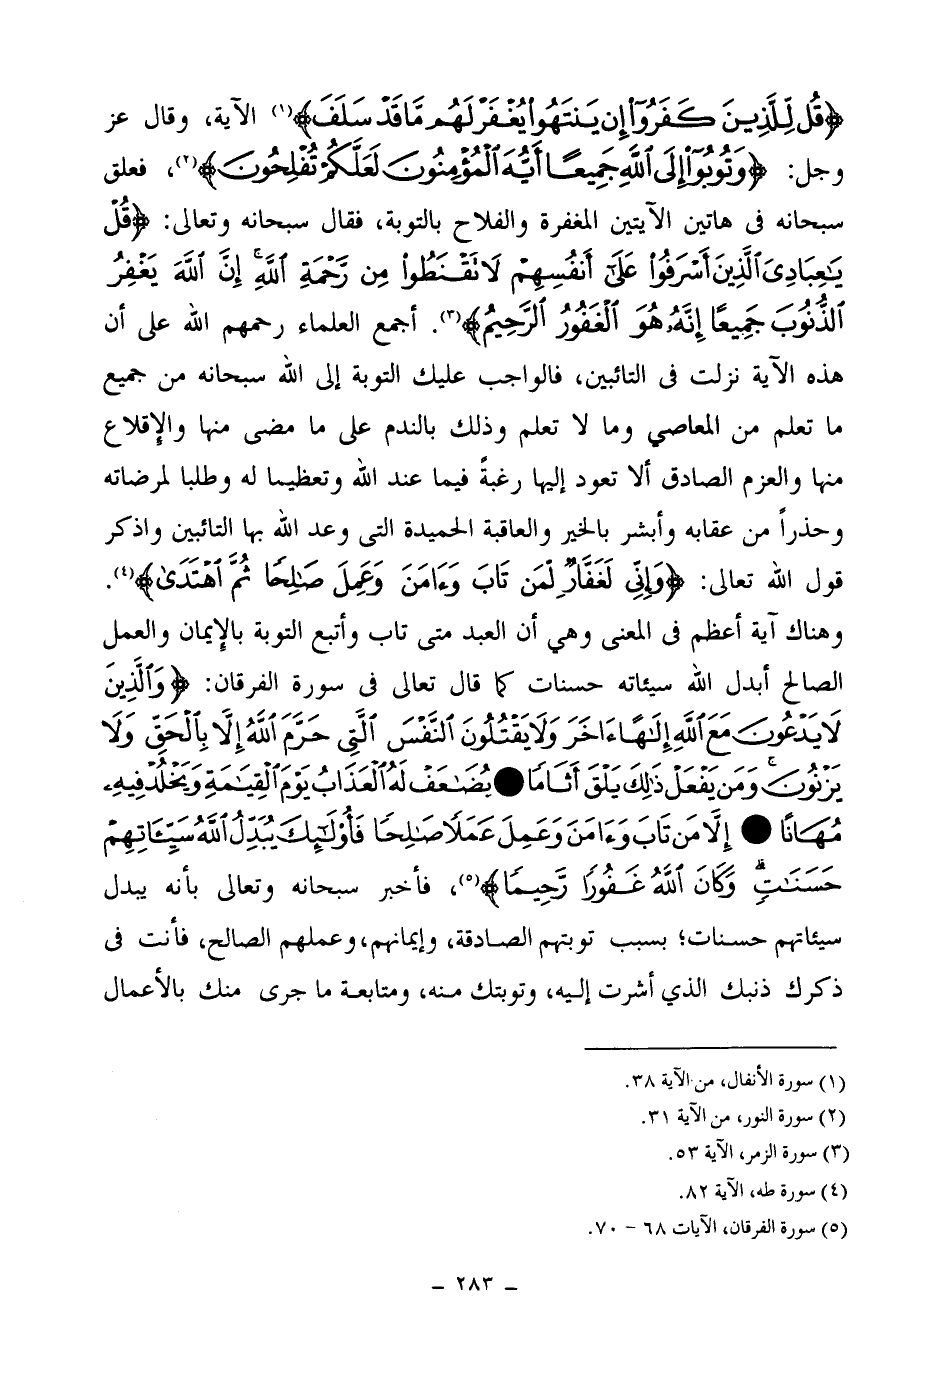 ﴿قُل لِّلَّذِينَ كَفَرُوٓا۟ إِن يَنتَهُوا۟ يُغْفَرْ لَهُم مَّا قَدْ سَلَفَ﴾(١) الآية، وقال عز
وجل: ﴿وَتُوبُوٓا۟ إِلَى ٱللَّهِ جَمِيعًا أَيُّهَ ٱلْمُؤْمِنُونَ لَعَلَّكُمْ تُفْلِحُونَ﴾(٢)، فعلق
سبحانه فى هاتين الآيتين المغفرة والفلاح بالتوبة، فقال سبحانه وتعالى: ﴿قُلْ
يَٰعِبَادِىَ ٱلَّذِينَ أَسْرَفُوا۟ عَلَىٰٓ أَنفُسِهِمْ لَا تَقْنَطُوا۟ مِن رَّحْمَةِ ٱللَّهِ ۚ إِنَّ ٱللَّهَ يَغْفِرُ
ٱلذُّنُوبَ جَمِيعًا إِنَّهُۥ هُوَ ٱلْغَفُورُ ٱلرَّحِيمُ﴾(٣). أجمع العلماء رحمهم الله على أن
هذه الآية نزلت فى التائبين، فالواجب عليك التوبة إلى الله سبحانه من جميع
ما تعلم من المعاصي وما لا تعلم وذلك بالندم على ما مضى منها والإقلاع
منها والعزم الصادق ألا تعود إليها رغبةً فيما عند الله وتعظيما له وطلبا لمرضاته
وحذراً من عقابه وأبشر بالخير والعاقبة الحميدة التى وعد الله بها التائبين واذكر
قول الله تعالى: ﴿وَإِنِّى لَغَفَّارٌ لِّمَن تَابَ وَءَامَنَ وَعَمِلَ صَٰلِحًا ثُمَّ ٱهْتَدَىٰ﴾(٤).
وهناك آية أعظم فى المعنى وهي أن العبد متى تاب وأتبع التوبة بالإيمان والعمل
الصالح أبدل الله سيئاته حسنات كما قال تعالى فى سورة الفرقان: ﴿وَٱلَّذِينَ
لَا يَدْعُونَ مَعَ ٱللَّهِ إِلَٰهًا ءَاخَرَ وَلَا يَقْتُلُونَ ٱلنَّفْسَ ٱلَّتِى حَرَّمَ ٱللَّهُ إِلَّا بِٱلْحَقِّ وَلَا
يَزْنُونَ ۚ وَمَن يَفْعَلْ ذَٰلِكَ يَلْقَ أَثَامًا ● يُضَٰعَفْ لَهُ ٱلْعَذَابُ يَوْمَ ٱلْقِيَٰمَةِ وَيَخْلُدْ فِيهِۦ
مُهَانًا ● إِلَّا مَن تَابَ وَءَامَنَ وَعَمِلَ عَمَلًا صَٰلِحًا فَأُو۟لَٰٓئِكَ يُبَدِّلُ ٱللَّهُ سَيِّـَٔاتِهِمْ
حَسَنَٰتٍ ۗ وَكَانَ ٱللَّهُ غَفُورًا رَّحِيمًا﴾(٥)، فأخبر سبحانه وتعالى بأنه يبدل
سيئاتهم حسنات؛ بسبب توبتهم الصادقة، وإيمانهم، وعملهم الصالح، فأنت فى
ذكرك ذنبك الذي أشرت إليه، وتوبتك منه، ومتابعة ما جرى منك بالأعمال
(١) سورة الأنفال، من الآية ٣٨.
(٢) سورة النور، من الآية ٣١.
(٣) سورة الزمر، الآية ٥٣.
(٤) سورة طه، الآية ٨٢.
(٥) سورة الفرقان، الآيات ٦٨ – ٧٠.
– ٢٨٣ –